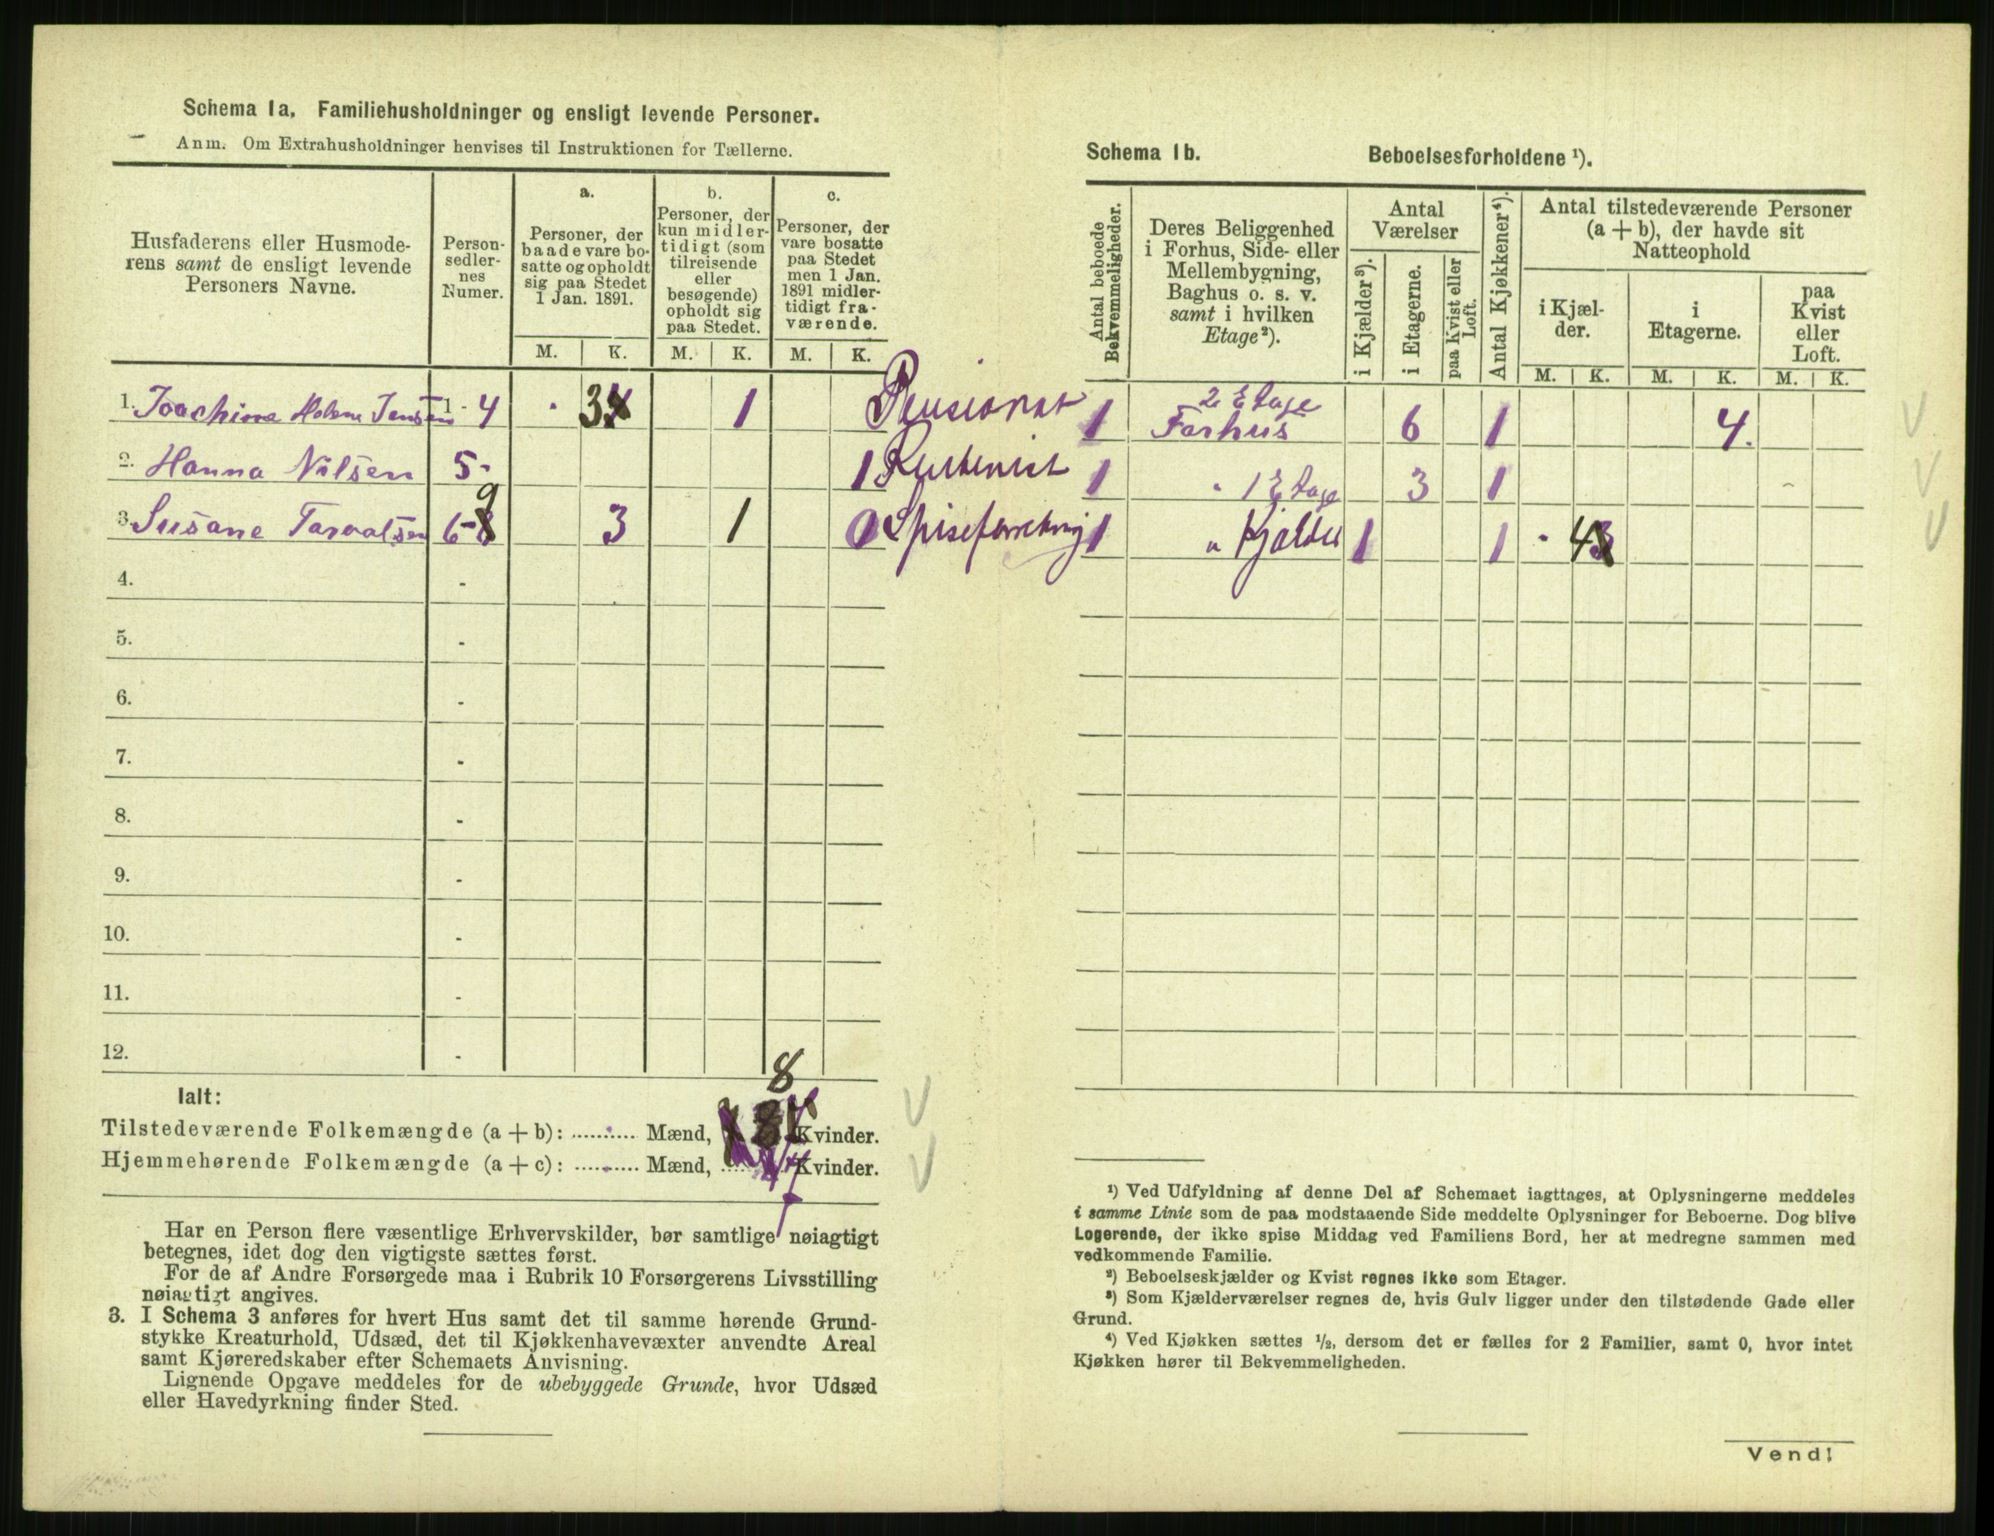 Schema 1a. Familiehusholdninger og ensligt levende Personer.
Anm. Om Extrahusholdninger henvises til Instruktionen for Tællerne.
Husfaderens eller Husmode-
rens samt de ensligt levende
Personers Navne.
Person-
sedler-
nes
Numer.
a.
Personer, der
baade vare bo-
satte og opholdt
sig paa Stedet
1 Jan. 1891.
b.
Personer, der
kun midler-
tidigt (som
tilreisende
eller
besøgende)
opholdt sig
paa Stedet.
c.
Personer, der
vare bosatte
paa Stedet
men 1 Jan.
1891 midler-
tidigt fra-
værende.
M. K. M. K. M. K.
1. Joachima Helene Jensen 1 - 4 3 1 Pensionat
2. Hanna Nilsen 5 - 1
3. Susane 6 - 9 3 1 0 Spiseforretning
4. -
5. -
6. -
7. -
8. -
9. -
10. -
11. -
12. -
8
Ialt:
Tilstedeværende Folkemængde (a + b): .......... Mænd, Kvinder.
Hjemmehørende Folkemængde (a + c): .......... Mænd, Kvinder.
7
Har en Person flere væsentlige Erhvervskilder, bør samtlige nøiagtigt
betegnes, idet dog den vigtigste sættes først.
For de af Andre Forsørgede maa i Rubrik 10 Forsørgerens Livsstilling
nøiagtigt angives.
3. I Schema 3 anføres for hvert Hus samt det til samme hørende Grund-
stykke Kreaturhold, Udsæd, det til Kjøkkenhavevæxter anvendte Areal
samt Kjøreredskaber efter Schemaets Anvisning.
Lignende Opgave meddeles for de ubebyggede Grunde, hvor Udsæd
eller Havedyrkning finder Sted.
Schema 1b. Beboelsesforholdene ¹).
Antal beboede
Bekvemmeligheder.
Deres Beliggenhed
i Forhus, Side- eller
Mellembygning,
Baghus o. s. v.
samt i hvilken
Etage²).
Antal
Værelser
i Kjælder³).
i Etagerne.
paa Kvist eller
Loft.
Antal Kjøkkener⁴).
Antal tilstedeværende Personer
(a + b), der havde sit
Natteophold
i Kjæl-
der.
i
Etagerne.
paa
Kvist
eller
Loft.
M. K. M. K. M. K.
1 2 Etage
Forhus 6 1 4.
1 " 1 Etage 3 1
1 " Kjælder 1 1 4
¹) Ved Udfyldning af denne Del af Schemaet iagttages, at Oplysningerne meddeles
i samme Linie som de paa modstaaende Side meddelte Oplysninger for Beboerne. Dog blive
Logerende, der ikke spise Middag ved Familiens Bord, her at medregne sammen med
vedkommende Familie.
²) Beboelseskjælder og Kvist regnes ikke som Etager.
³) Som Kjælderværelser regnes de, hvis Gulv ligger under den tilstødende Gade eller
Grund.
⁴) Ved Kjøkken sættes ½, dersom det er fælles for 2 Familier, samt 0, hvor intet
Kjøkken hører til Bekvemmeligheden.
Vend!